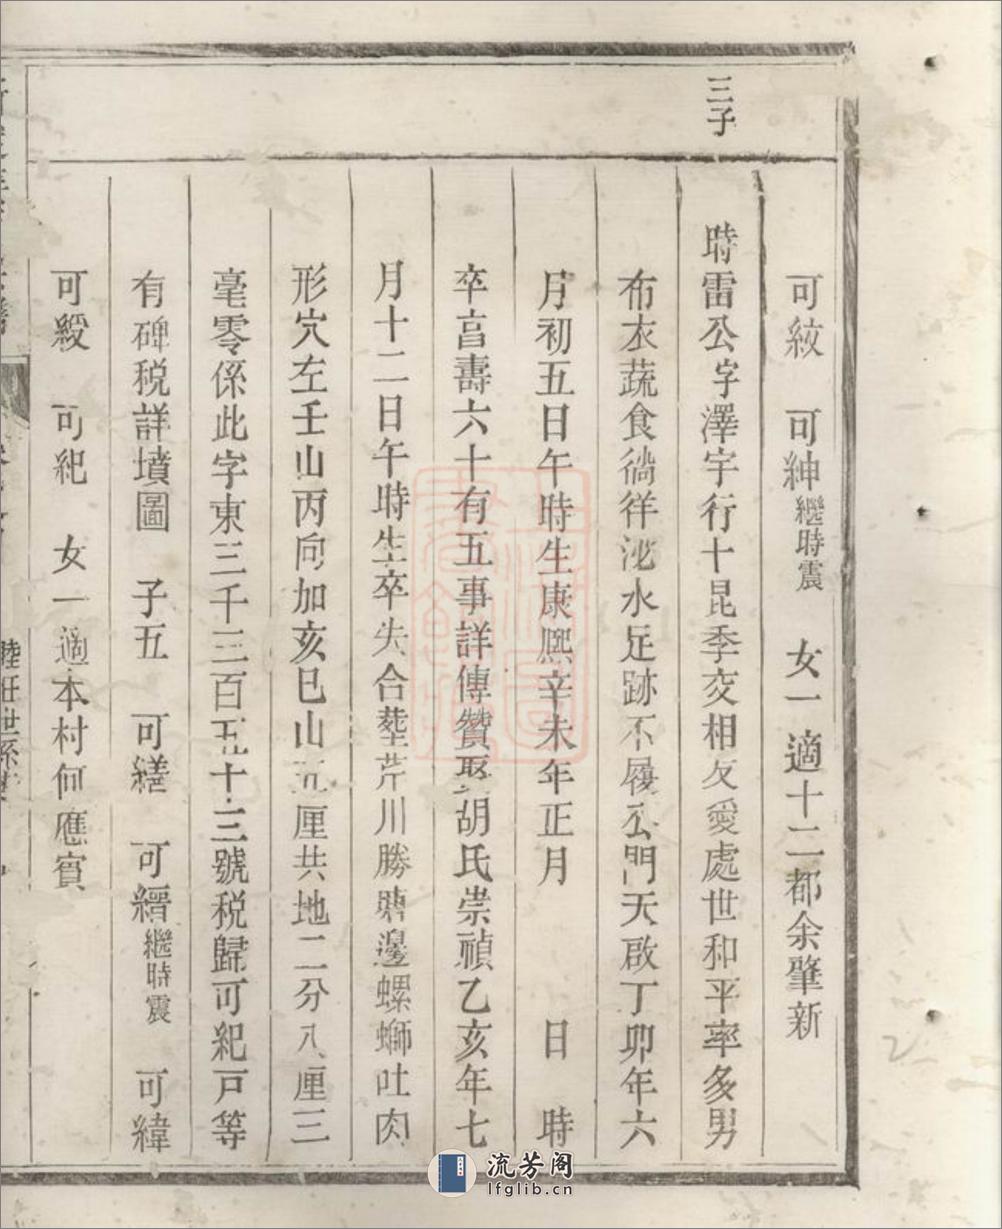 三子
可紋　可紳繼時震　女一適十二都余肇新
時雷公字澤宇行十昆季交相友愛處世和平率多男
布衣蔬食徜徉泌水足跡不履公門天啟丁卯年六
月初五日午時生康熙辛未年正月　日　時
卒享壽六十有五事詳傳贊娶胡氏崇禎乙亥年七
月十二日午時生卒失合葬芹川勝塘邊螺螄吐肉
形穴左壬山丙向加亥巳山五厘共地二分八厘三
毫零係此字東三千三百五十三號税歸可紀戸等
有碑税詳墳圖　子五　可繕　可縉繼時震　可緯
可綬　可紀　女一適本村何應賓
流芳阁
lfglib.cn